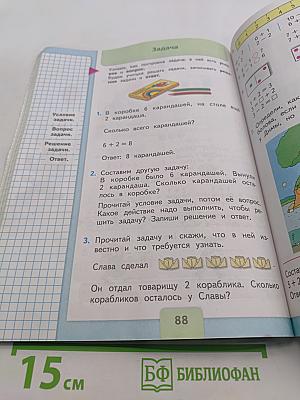 Задача
Узнаем, как составлена задача: в ней есть условие и вопрос.
Условие задачи.
Вопрос задачи.
Решение задачи.
Ответ.
1. В коробке 6 карандашей, на столе
2 карандаша.
Сколько всего карандашей?
6 + 2 = 8
Ответ: 8 карандашей.
2. Составим другую задачу:
В коробке было 6 карандашей. Вынули
2 карандаша. Сколько карандашей оста-
лось в коробке?
Прочитай условие задачи, потом её вопрос.
Какое действие надо выполнить, чтобы ре-
шить задачу? Запиши решение и ответ.
3. Прочитай задачу и скажи, что в ней из-
вестно и что требуется узнать.
Слава сделал
Он отдал товарищу 2 кораблика. Сколько
корабликов осталось у Славы?
88
15 см
БФ БИБЛИОФАН